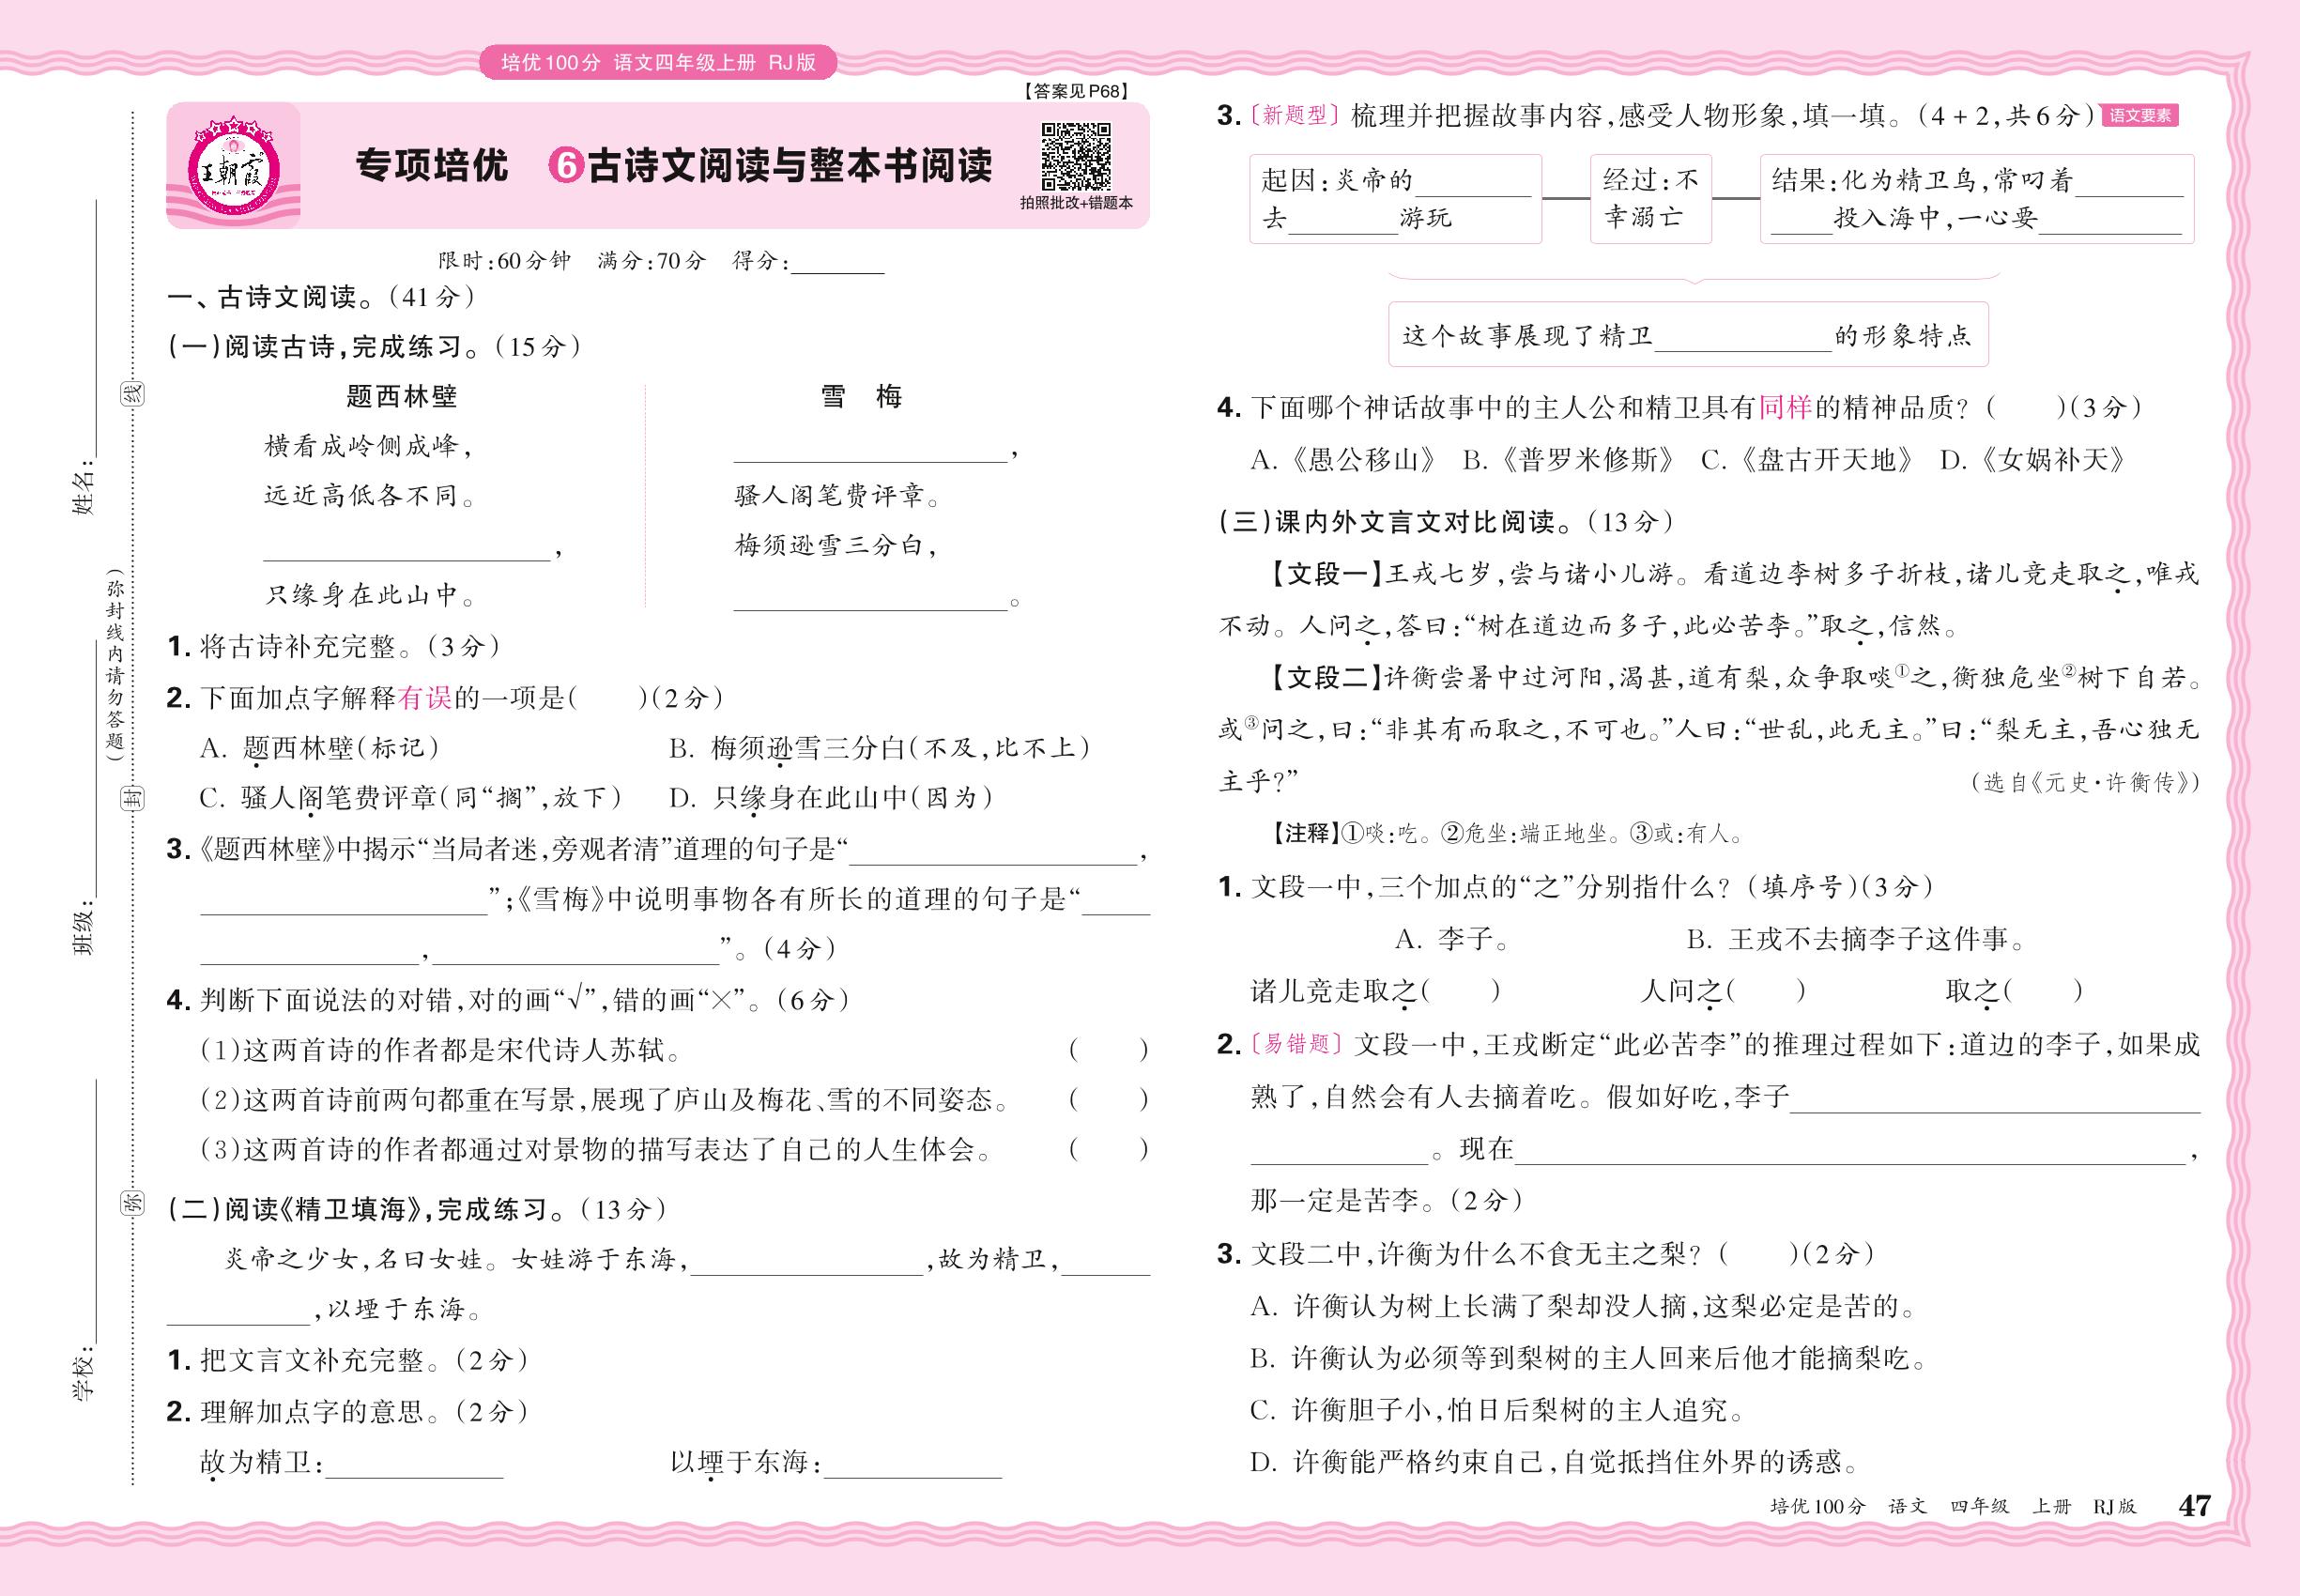 培优100分 语文四年级上册 RJ版
【答案见P68】
王朝霞
专项培优 6古诗文阅读与整本书阅读
拍照批改+错题本
限时:60分钟 满分:70分 得分:______
一、古诗文阅读。(41分)
(一)阅读古诗,完成练习。(15分)
题西林壁
横看成岭侧成峰,
远近高低各不同。
____________,
只缘身在此山中。
雪 梅
____________,
骚人阁笔费评章。
梅须逊雪三分白,
____________。
1. 将古诗补充完整。(3分)
2. 下面加点字解释有误的一项是( )(2分)
A. 题西林壁(标记) B. 梅须逊雪三分白(不及,比不上)
C. 骚人阁笔费评章(同“搁”,放下) D. 只缘身在此山中(因为)
3.《题西林壁》中揭示“当局者迷,旁观者清”道理的句子是“____________,
____________”;《雪梅》中说明事物各有所长的道理的句子是“____
____________,____________”。(4分)
4. 判断下面说法的对错,对的画“√”,错的画“×”。(6分)
(1)这两首诗的作者都是宋代诗人苏轼。 ( )
(2)这两首诗前两句都重在写景,展现了庐山及梅花、雪的不同姿态。 ( )
(3)这两首诗的作者都通过对景物的描写表达了自己的人生体会。 ( )
(二)阅读《精卫填海》,完成练习。(13分)
炎帝之少女,名曰女娃。女娃游于东海,____________,故为精卫,____
________,以堙于东海。
1. 把文言文补充完整。(2分)
2. 理解加点字的意思。(2分)
故为精卫:________ 以堙于东海:________
学校:
班级:
姓名:
(弥封线内请勿答题)
弥
封
线
3.〔新题型〕梳理并把握故事内容,感受人物形象,填一填。(4+2,共6分) 语文要素
起因:炎帝的______
去______游玩
经过:不
幸溺亡
结果:化为精卫鸟,常叼着______
____投入海中,一心要________
这个故事展现了精卫________的形象特点
4. 下面哪个神话故事中的主人公和精卫具有同样的精神品质?( )(3分)
A.《愚公移山》 B.《普罗米修斯》 C.《盘古开天地》 D.《女娲补天》
(三)课内外文言文对比阅读。(13分)
【文段一】王戎七岁,尝与诸小儿游。看道边李树多子折枝,诸儿竞走取之,唯戎
不动。人问之,答曰:“树在道边而多子,此必苦李。”取之,信然。
【文段二】许衡尝暑中过河阳,渴甚,道有梨,众争取啖①之,衡独危坐②树下自若。
或③问之,曰:“非其有而取之,不可也。”人曰:“世乱,此无主。”曰:“梨无主,吾心独无
主乎?” (选自《元史·许衡传》)
【注释】①啖:吃。②危坐:端正地坐。③或:有人。
1. 文段一中,三个加点的“之”分别指什么?(填序号)(3分)
A. 李子。 B. 王戎不去摘李子这件事。
诸儿竞走取之( ) 人问之( ) 取之( )
2.〔易错题〕文段一中,王戎断定“此必苦李”的推理过程如下:道边的李子,如果成
熟了,自然会有人去摘着吃。假如好吃,李子____________
________。现在____________,
那一定是苦李。(2分)
3. 文段二中,许衡为什么不食无主之梨?( )(2分)
A. 许衡认为树上长满了梨却没人摘,这梨必定是苦的。
B. 许衡认为必须等到梨树的主人回来后他才能摘梨吃。
C. 许衡胆子小,怕日后梨树的主人追究。
D. 许衡能严格约束自己,自觉抵挡住外界的诱惑。
培优100分 语文 四年级 上册 RJ版 47